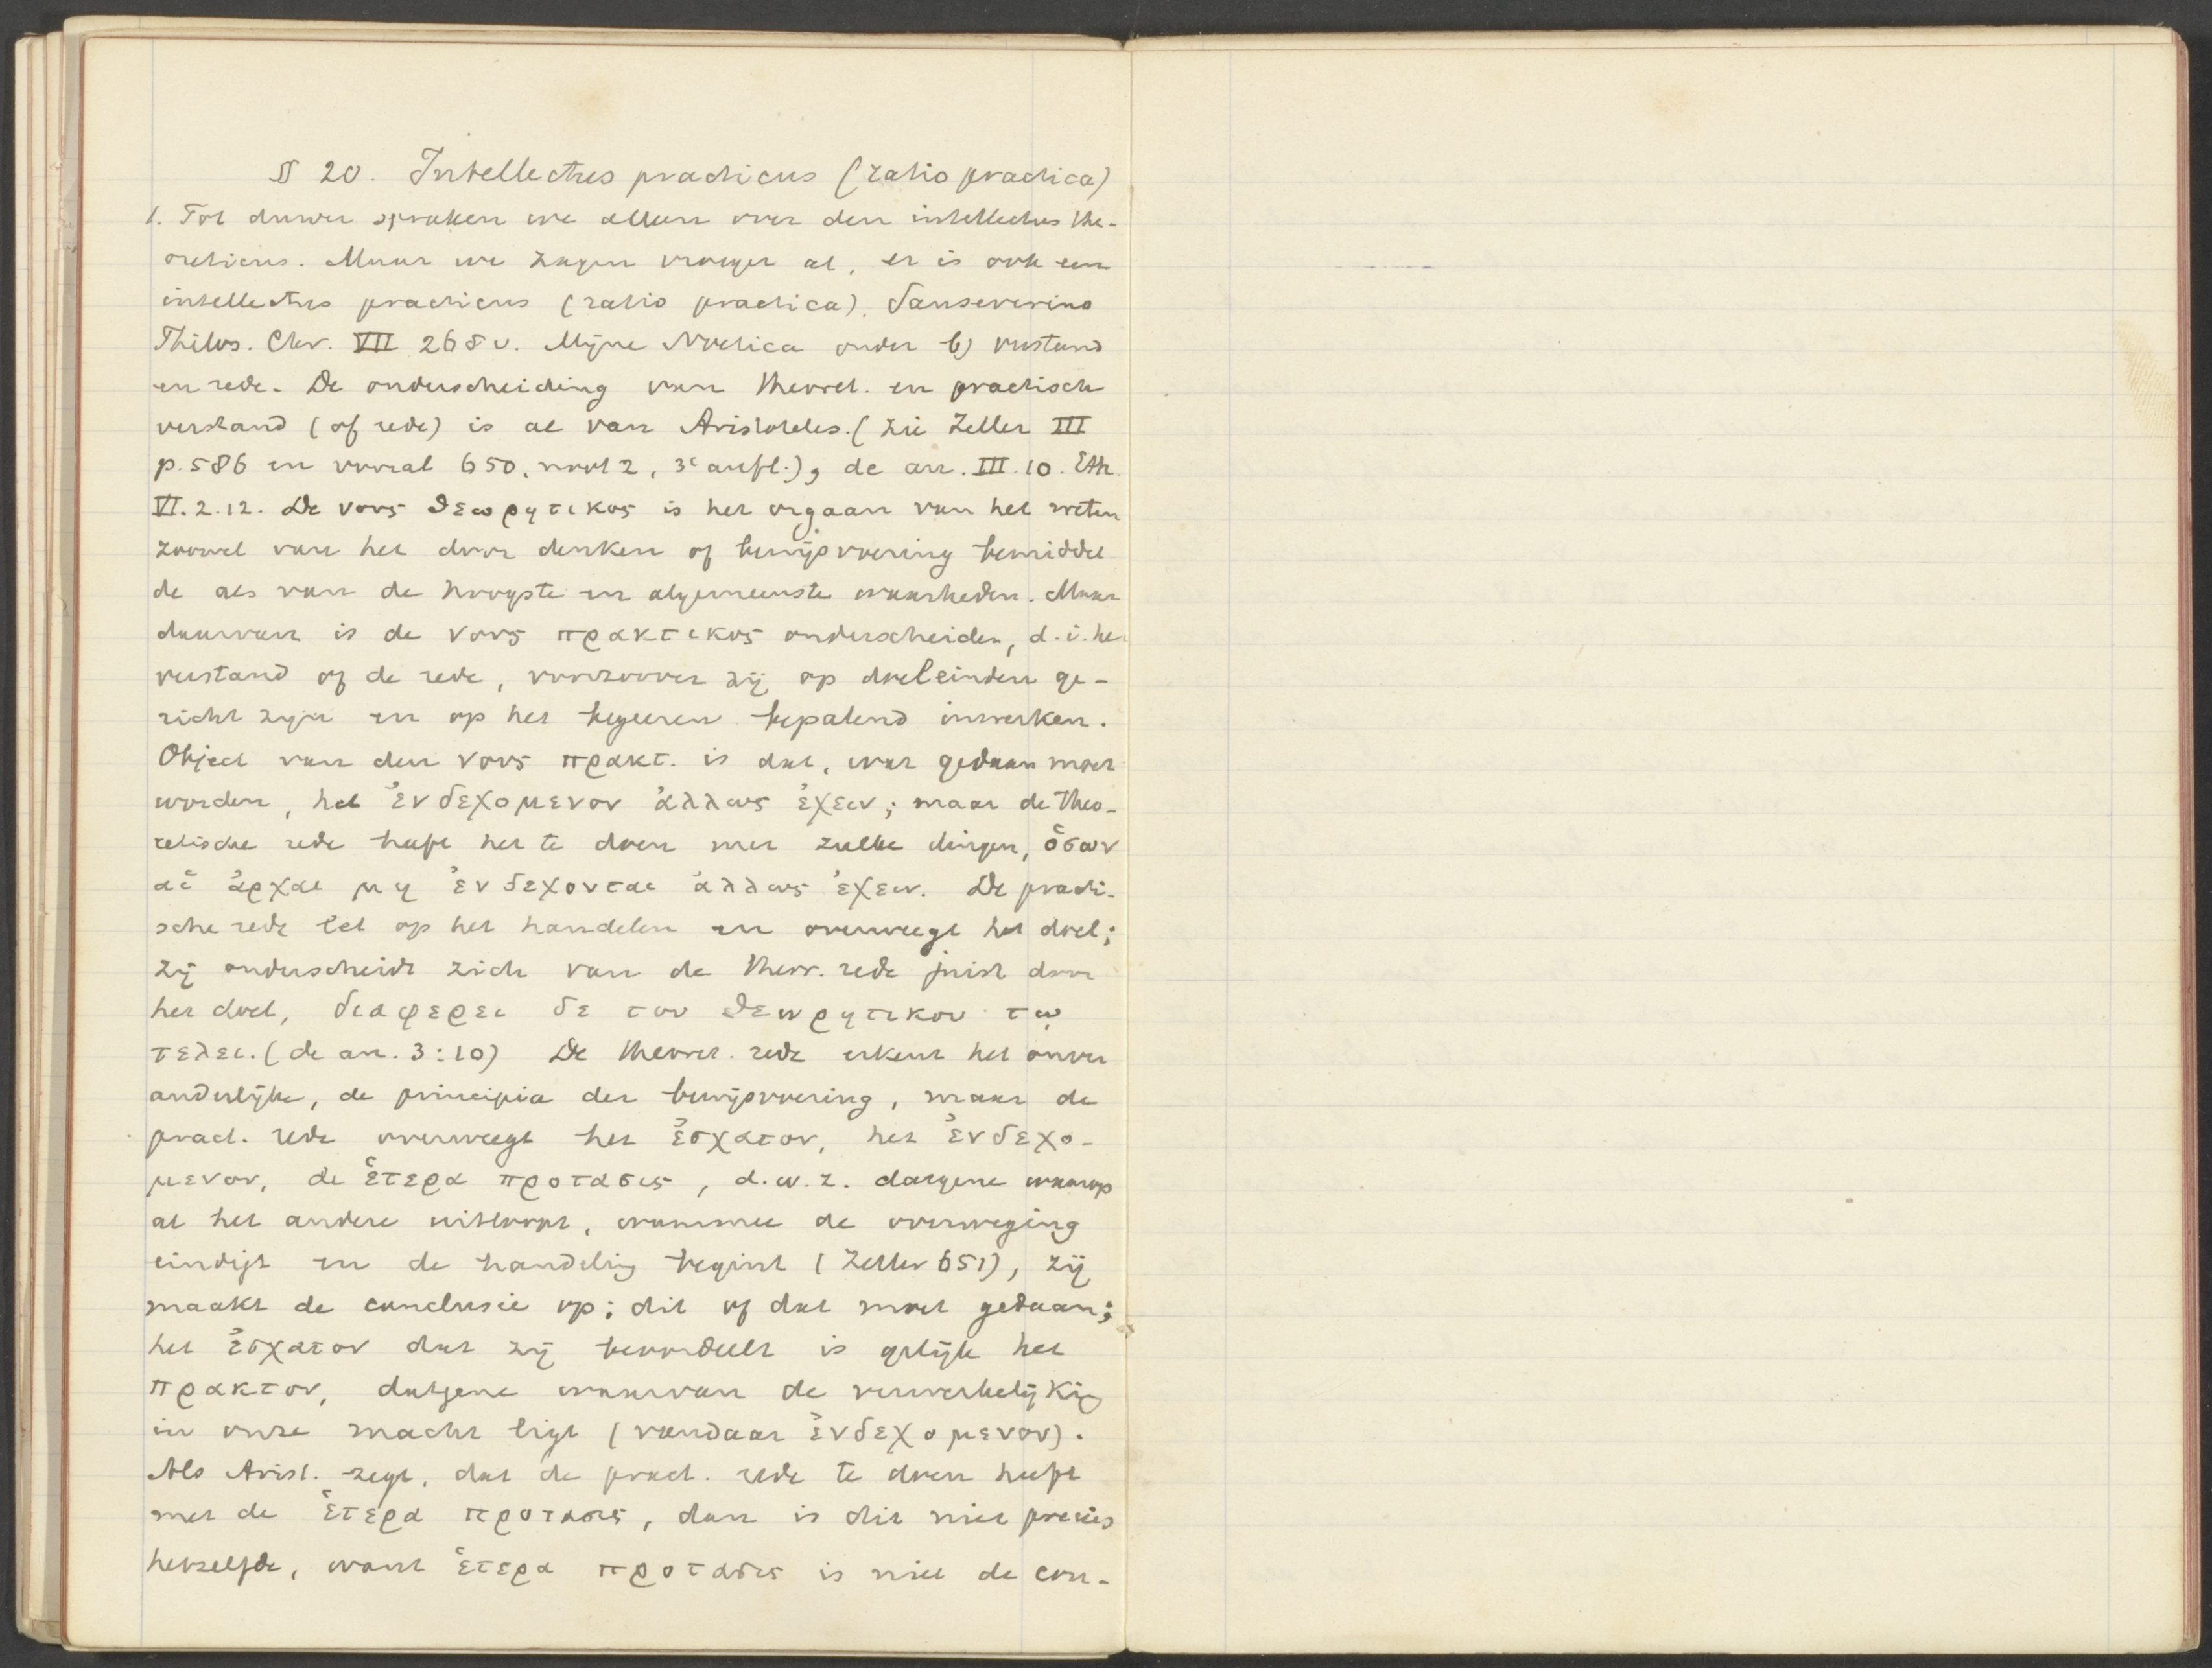 § 20. Intellectus practicus (ratio practica)
1. Tot dusver spraken we alleen over den intellectus the-
oreticus. Maar we zagen vroeger al, er is ook een
intellectus practicus (ratio practica). Sanseverino
Philos. Chr. VII 268 v. Mijne Noetica onder b) verstand
en rede. De onderscheiding van theoret. en practisch
verstand (of rede) is al van Aristoteles. (zie Zeller III
p. 586 en vooral 650, noot 2, 3e aufl.), de an. III. 10. Eth.
VI. 2. 12. De νους θεωρητικος is het orgaan van het weten
zoowel van het door denken of bewijsvoering bemiddel
de als van de hoogste en algemeenste waarheden. Maar
daarvan is de νους πρακτικος onderscheiden, d.i. het
verstand of de rede, voorzoover zij op doeleinden ge-
richt zijn en op het begeeren bepalend inwerken.
Object van den νους πρακτ. is dat, wat gedaan moet
worden, het ἐνδεχομενον ἀλλως ἐχειν; maar de theo-
retische rede heeft het te doen met zulke dingen, ὁσων
αἱ ἀρχαι μη ἐνδεχονται ἀλλως ἐχειν. De practi-
sche rede let op het handelen en overweegt het doel;
zij onderscheidt zich van de theor. rede juist door
het doel, διαφερει δε του θεωρητικου τῳ
τελει. (de an. 3:10) De theoret. rede erkent het onver
anderlijke, de principia der bewijsvoering, maar de
pract. rede overweegt het ἐσχατον, het ἐνδεχο-
μενον, de ἑτερα προτασις, d.w.z. datgene waarop
al het andere uitloopt, waarmee de overweging
eindigt en de handeling begint (Zeller 651), zij
maakt de conclusie op: dit of dat moet gedaan;
het ἐσχατον dat zij beoordeelt is gelijk het
πρακτον, datgene waarvan de verwerkelijking
in onze macht ligt (vandaar ἐνδεχομενον).
Als Arist. zegt, dat de pract. rede te doen heeft
met de ἑτερα προτασις, dan is dit niet precies
hetzelfde, want ἑτερα προτασις is niet de con-